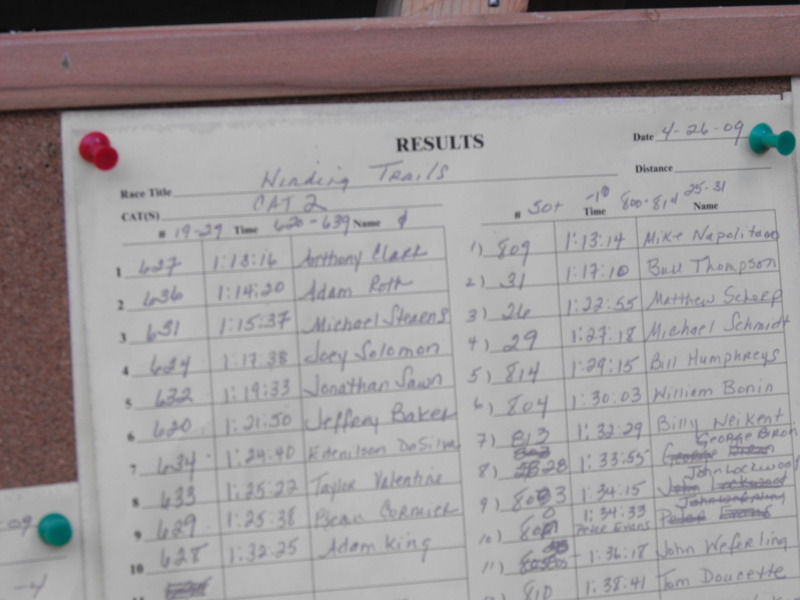 RESULTS
Date 4-26-09
Race Title Winding Trails
Distance
CAT(S) CAT 2
# 19-29 Time 620-639 Name
1 627 1:13:16 Anthony Clark
2 636 1:14:20 Adam Roth
3 631 1:15:37 Michael Stearns
4 624 1:17:38 Joey Solomon
5 632 1:19:33 Jonathan Sawn
6 620 1:21:50 Jeffery Baker
7 634 1:24:40 Edenilson DaSilva
8 633 1:25:22 Taylor Valentine
9 629 1:25:38 Beau Cormier
10 628 1:32:25 Adam King
# 50+ Time 800-814 25-31 Name
1) 809 1:13:14 Mike Napolitano
2) 31 1:17:10 Bull Thompson
3) 26 1:22:55 Matthew Schorp
4) 29 1:27:18 Michael Schmidt
5) 814 1:29:15 Bill Humphreys
6) 804 1:30:03 William Bonin
7) 813 1:32:29 Billy Neikent
8) 28 1:33:55 George Biron
9) 803 1:34:15 John Lockwood
10) 1:34:33 Peter Evans
11) 1:36:18 John Weferling
810 1:38:41 Tom Doucette
-09
-4